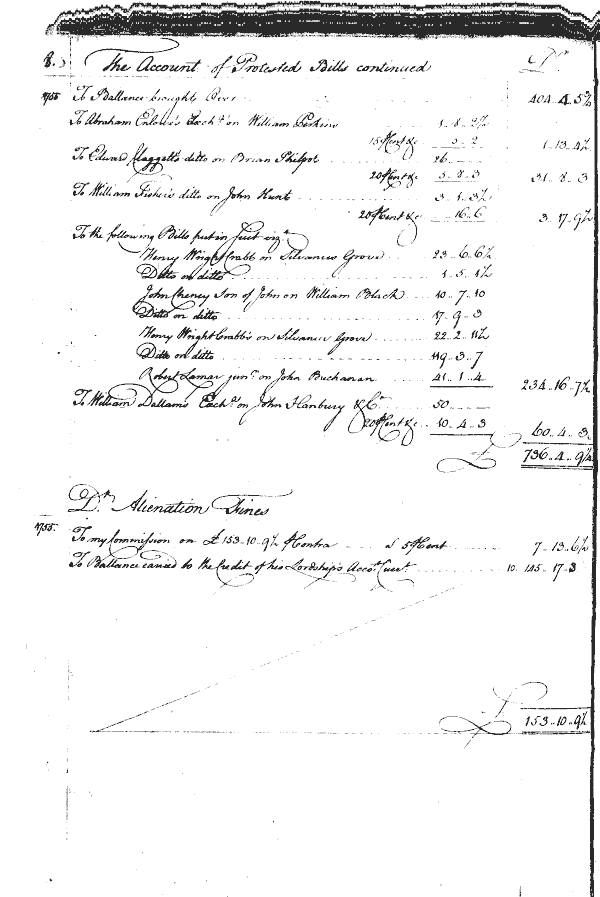 8. The Account of Protested Bills continued Dr
1755 To Ballance brought Over 404..4..5½
To Abraham Enlows's Exchª on William Perkins 1..8..2½
15 ℔ Cent &c 5..2 1..13..4½
To Edward Maggett's ditto on Brian Philpot 26..
20 ℔ Cent &c 5..8..3 31..8..3
To William Fisher's ditto on John Hunt 3..1..3½
20 ℔ Cent &c 16..6 3..17..9½
To the following Bills put in Suit vizt
Henry Wright Crabb on Silvanus Grove 23..6..6½
Ditto on ditto 1..5..1½
John Cheney Son of John on William Black 10..7..10
Ditto on ditto 17..9..3
Henry Wright Crabb's on Silvanus Grove 22..2..11½
Ditto on ditto 119..3..7
Robert Lamar junr on John Buchanan 41..1..4 234..16..7½
To William Dallam's Exchª on John Hanbury & Co 50..
20 ℔ Cent &c 10..4..3 60..4..3
£ 736..4..9½
Dr Alienation Fines
1755. To my Commission on £153..10..9½ ℔ Contra @ 5 ℔ Cent 7..13..6½
To Ballance carried to the Credit of his Lordship's Accot Currt 10 145..17..3
£ 153..10..9½